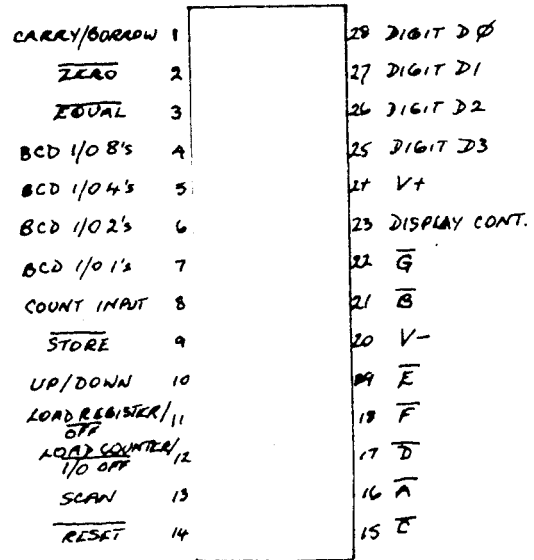 CARRY/BORROW 1
Z̅E̅R̅O̅ 2
E̅Q̅U̅A̅L̅ 3
BCD I/O 8's 4
BCD I/O 4's 5
BCD I/O 2's 6
BCD I/O 1's 7
COUNT INPUT 8
S̅T̅O̅R̅E̅ 9
UP/DOWN 10
LOAD REGISTER/ 11
O̅F̅F̅
LOAD COUNTER/ 12
I̅/̅O̅ ̅O̅F̅F̅
SCAN 13
R̅E̅S̅E̅T̅ 14
28 DIGIT DØ
27 DIGIT D1
26 DIGIT D2
25 DIGIT D3
24 V+
23 DISPLAY CONT.
22 G̅
21 B̅
20 V-
19 E̅
18 F̅
17 D̅
16 A̅
15 C̅